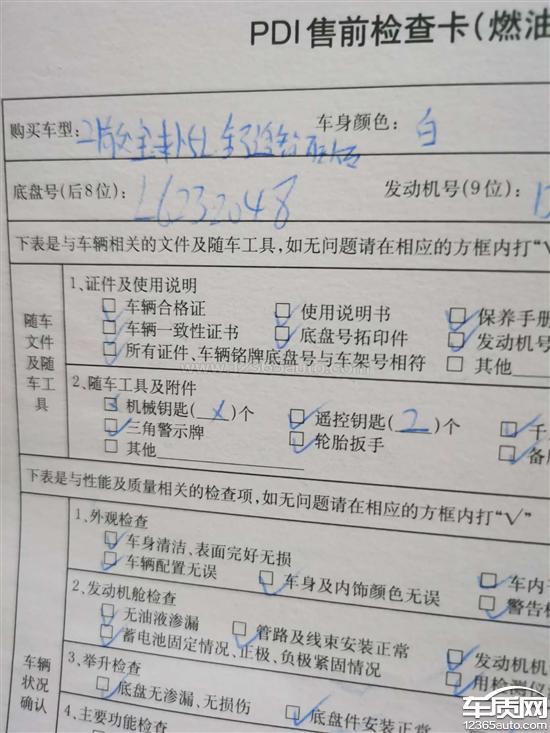 PDI售前检查卡(燃油
购买车型: 车身颜色: 白
底盘号(后8位): L6232048 发动机号(9位):
下表是与车辆相关的文件及随车工具,如无问题请在相应的方框内打"√
随车文件及随车工具
1、证件及使用说明
车辆合格证 使用说明书 保养手册
车辆一致性证书 底盘号拓印件 发动机号
所有证件、车辆铭牌底盘号与车架号相符 其他
2、随车工具及附件
机械钥匙(x)个 遥控钥匙(2)个 千
三角警示牌 轮胎扳手 备
其他
下表是与性能及质量相关的检查项,如无问题请在相应的方框内打"√"
车辆状况确认
1、外观检查
车身清洁、表面完好无损
车辆配置无误 车身及内饰颜色无误 车内
警告
2、发动机舱检查
无油液渗漏 管路及线束安装正常 发动机机
蓄电池固定情况、正极、负极紧固情况 用检测仪
3、举升检查
底盘无渗漏、无损伤 底盘件安装正常
4、主要功能检查
www.12365auto.com
车质网
12365auto.com